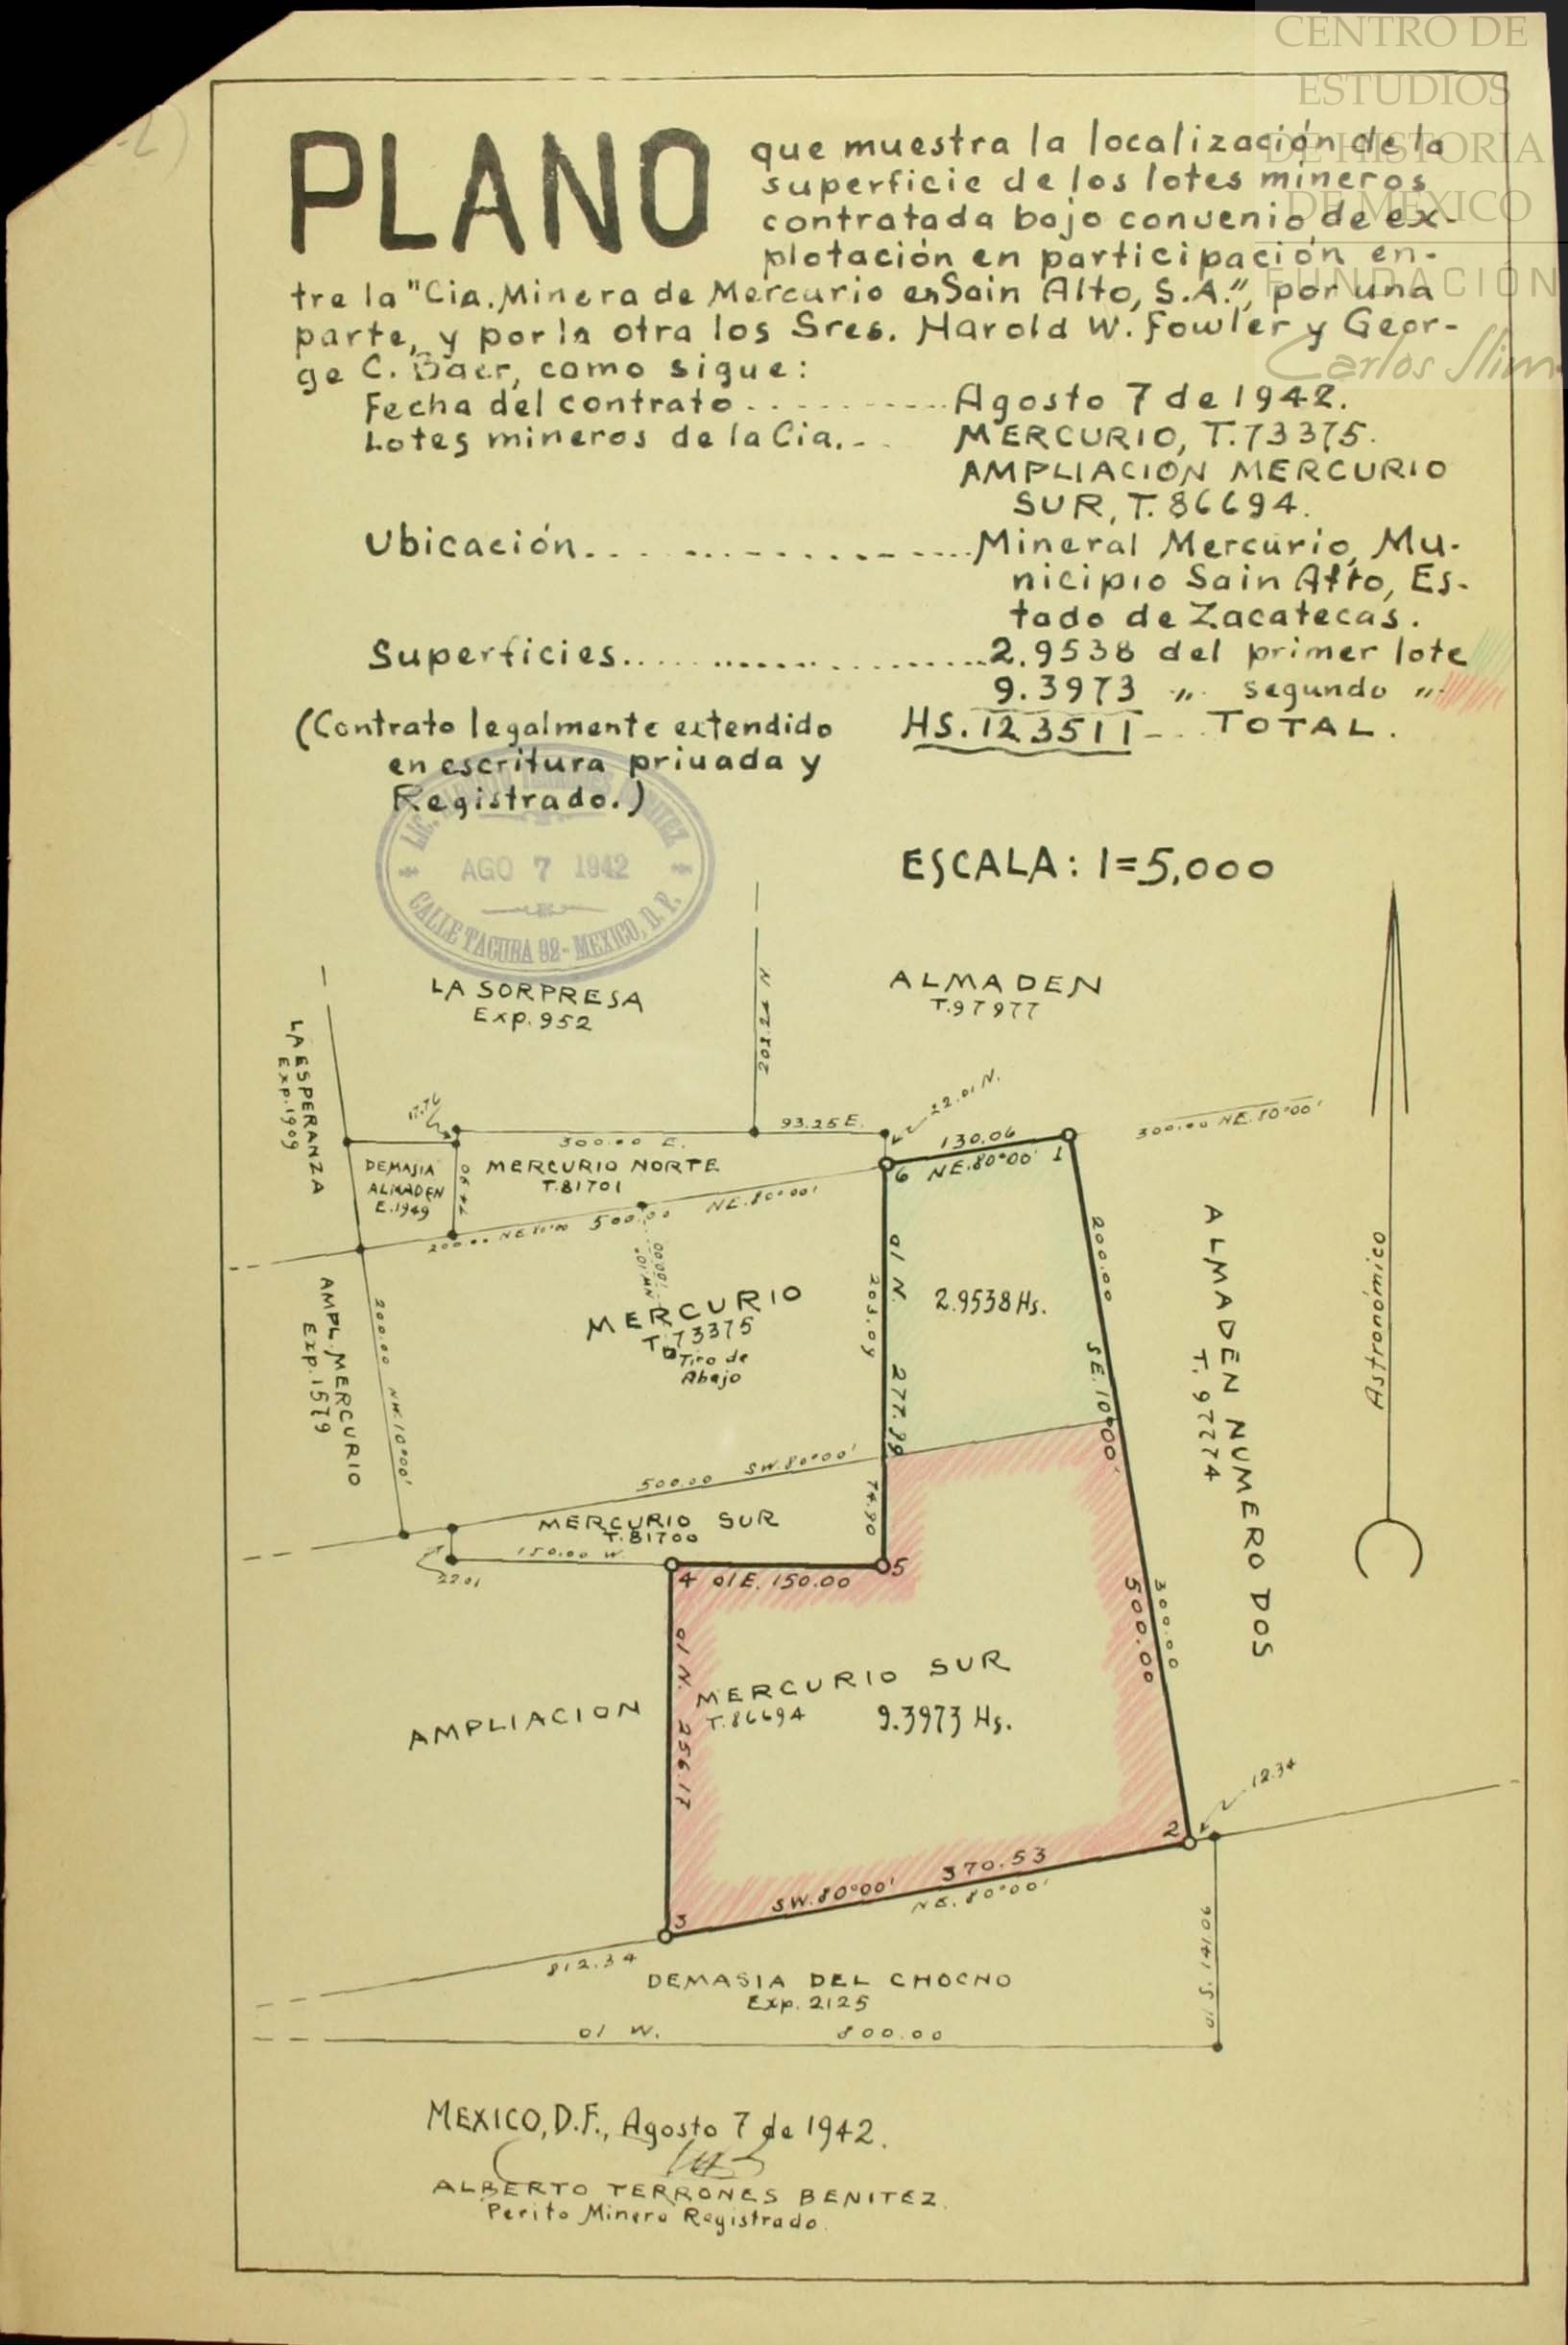 CENTRO DE
ESTUDIOS
DE HISTORIA
DE MEXICO
FUNDACIÓN
Carlos Slim
PLANO que muestra la localización de la
superficie de los lotes mineros
contratada bajo convenio de ex-
plotación en participación en-
tre la "Cia. Minera de Mercurio en Sain Alto, S.A.", por una
parte, y por la otra los Sres. Harold W. Fowler y Geor-
ge C. Baer, como sigue:
Fecha del contrato.......... Agosto 7 de 1942.
Lotes mineros de la Cia... MERCURIO, T.73375.
AMPLIACION MERCURIO
SUR, T. 86694.
Ubicación.................. Mineral Mercurio, Mu-
nicipio Sain Alto, Es-
tado de Zacatecas.
Superficies.................. 2.9538 del primer lote
9.3973 " segundo "
(Contrato legalmente extendido HS. 12 3511 - - . TOTAL.
en escritura privada y
Registrado.)
LIC.
AGO 7 1942
CALLE TACUBA 92 - MEXICO, D. F.
ESCALA: 1=5,000
LA SORPRESA
Exp. 952
ALMADEN
T.97977
LA ESPERANZA
Exp. 1909
93.25 E.
22.01 N.
300.00 E.
130.06
NE. 80°00'
300.00 NE. 80°00'
1
6
DEMASIA
ALMADEN
E. 1949
74.90
MERCURIO NORTE
T.81701
200.00 NE 80°00 500.00 NE. 80°00'
AMPL. MERCURIO
Exp. 1579
200.00 NW. 10°00'
MERCURIO
T.73375
Tiro de
Abajo
203.09
al N. 277.99
2.9538 Hs.
200.00 SE. 10°00'
ALMADEN NUMERO DOS
T. 97774
Astronómico
500.00 SW. 80°00'
74.90
MERCURIO SUR
T.81700
150.00 W
22.01
4 al E. 150.00 5
300.00
500.00
al N. 256.17
AMPLIACION MERCURIO SUR
T.86694
9.3973 Hs.
12.34
2
370.53
SW. 80°00'
NE. 80°00'
3
812.34
DEMASIA DEL CHOCHO
Exp. 2125
al S. 141.06
al W. 800.00
MEXICO, D.F., Agosto 7 de 1942.
ALBERTO TERRONES BENITEZ.
Perito Minero Registrado.